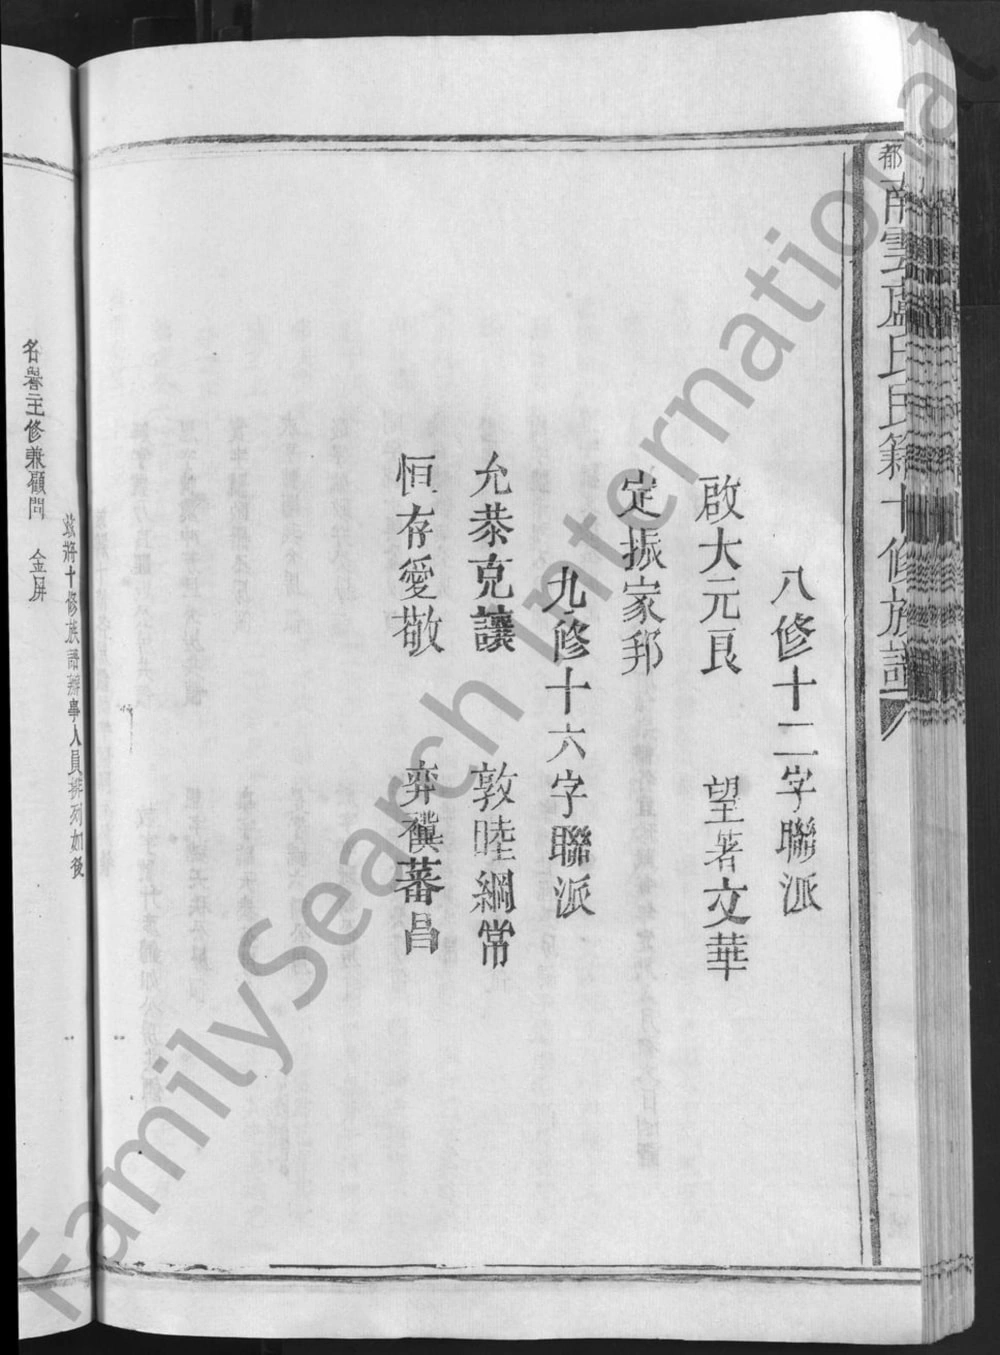 都南雲盧氏氏籍十修族譜
八修十二字聯派
啟大元良 望著文華
定振家邦
九修十六字聯派
允恭克讓 敦睦綱常
恒存愛敬 弈禩蕃昌
茲將十修族譜辦事人員排列如後
名譽主修兼顧問 金屏
FamilySearch International